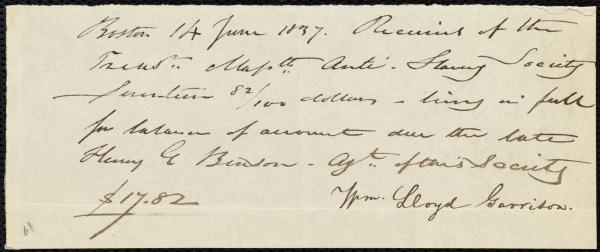 Boston 14 June 1837. Received of the
Treasr. Masstts Anti-Slavery Society
Seventeen 82/100 dollars - being in full
for balance of account due the late
Henry E Benson - Agt. of this Society
$17.82
Wm. Lloyd Garrison.